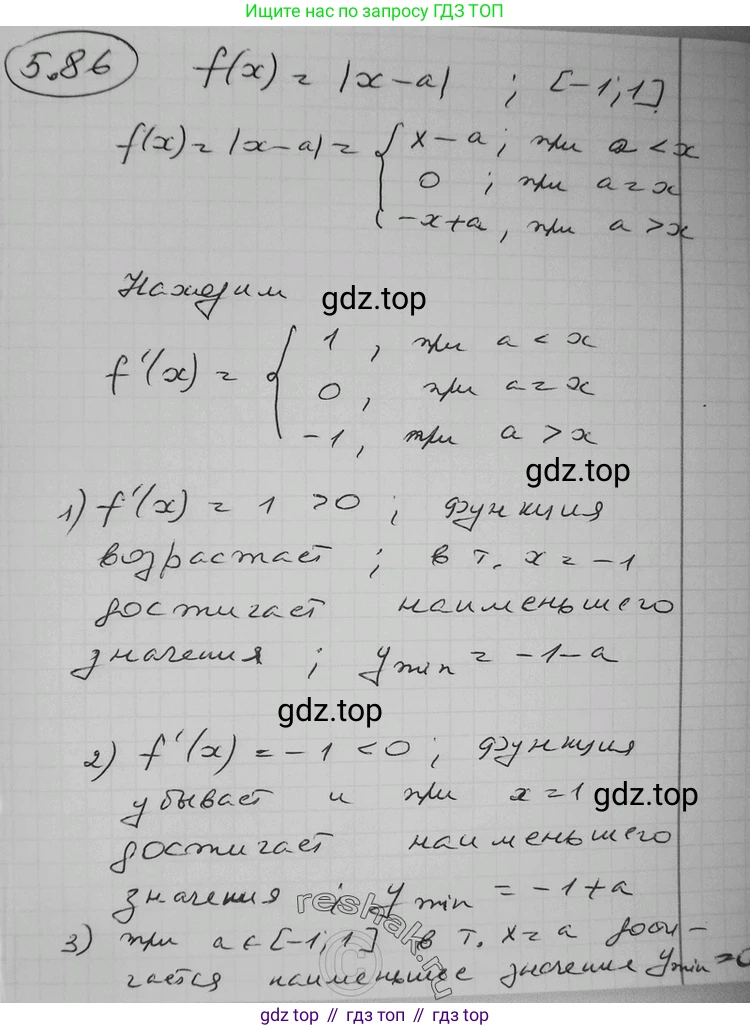 Ищите нас по запросу ГДЗ ТОП
5.86 f(x) = |x-a| ; [-1; 1]
f(x) = |x-a| = { x-a; при a < x
0 ; при a = x
-x+a, при a > x
Находим
gdz.top
f'(x) = { 1, при a < x
0, при a = x
-1, при a > x
gdz.top
1) f'(x) = 1 > 0 ; функция
возрастает ; в т. x = -1
достигает наименьшего
значения ; y min = -1-a
gdz.top
2) f'(x) = -1 < 0 ; функция
убывает и при x = 1
gdz.top
достигает наименьшего
значения ; y min = -1+a
reshak.ru
3) при a ∈ [-1; 1] в т. x = a дости-
гается наименьшее значения y min = 0
gdz.top // гдз топ // гдз.топ // gdz top